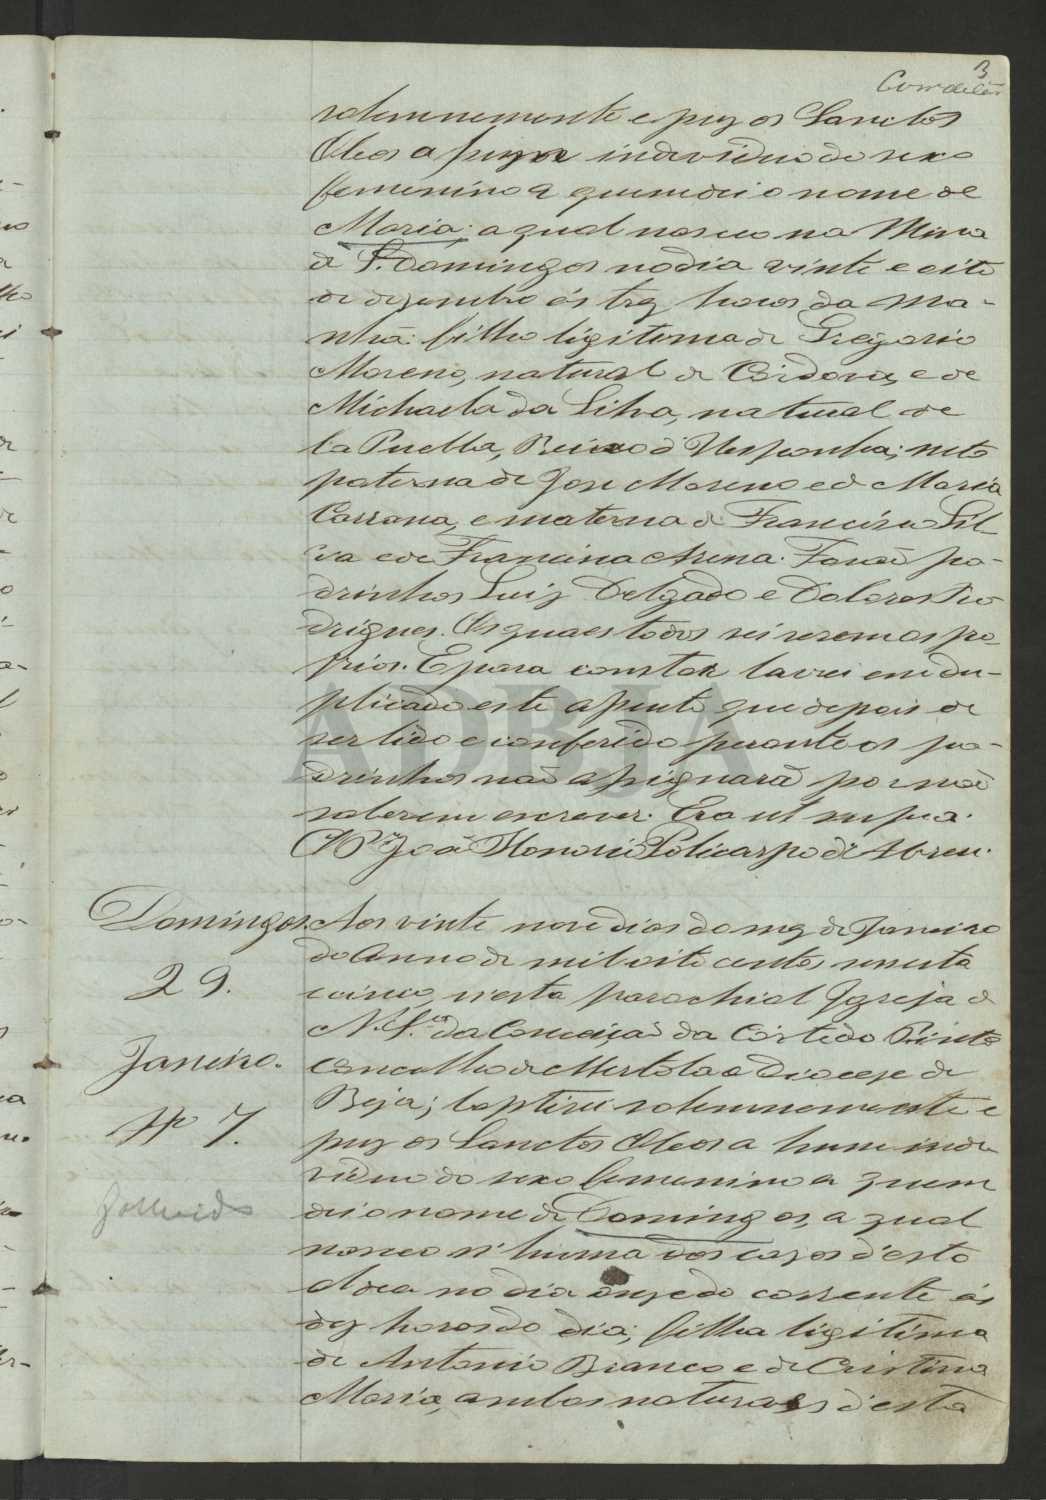 3
solemnemente e puz os Sanctos
Oleos a huma individuo do sexo
femenino a quem dei o nome de
Maria: a qual nasceo na Mina
de S. Domingos no dia vinte e oito
de dezembro ás trez horas da ma-
nhã: filha ligitima de Gregorio
Moreno, natural de Cordova, e de
Michaela da Silva, natural de
la Puebla, Reino d'Hespanha; neta
paterna de Jose Moreno e de Maria
Carrana, e materna de Francisco Sil
va e de Francisca Arena. Forão pa-
drinhos Luiz Delgado e Dolores Ro
drigues. Os quaes todos sei serem os pro
prios. E para constar lavrei em du-
plicado este assento que depois de
ser lido e conferido perante os pa-
drinhos não assignarão por não
saberem escrever. Era ut supra.
O P.or João Honorio Policarpo de Abreu.
Domingos.
29.
Janeiro.
Nº 7.
Fallecido
Aos vinte nove dias do mez de Janeiro
do Anno de mil oito centos sessenta
cinco, n'esta parochial Igreja de
N. S.ra da Conceição da Côrte do Pinto
Concelho de Mertola e Diocese de
Beja; baptizei solemnemente e
puz os Sanctos Oleos a hum indi
viduo do sexo femenino a quem
dei o nome de Domingos, a qual
nasceo n'huma das casas d'esta
Aldea no dia onze do corrente ás
dez horas do dia; filha ligitima
de Antonio Branco e de Cristina
Maria, ambos naturaes d'esta
ADBJA